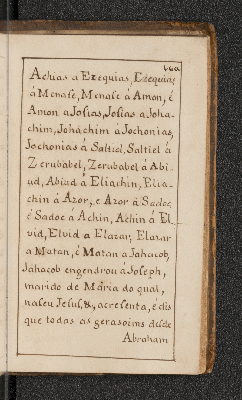 Achias a Ezequias, Ezequias
á Menase, Menase á Amon, é
Amon a Josias, Josias a Joha-
chim, Johachim á Jochonias,
Jochonias á Saltiel, Saltiel á
Zerubabel, Zerubabel á Abi-
ud, Abiud á Eliachin, Elia-
chin á Azor, e Azor á Sadoc,
é Sadoc á Achin, Achin á El-
vid, Elvid a Elazar, Elazar
a Matan, é Matan a Jahacob,
Jahacob engendrou á Joseph,
marido de Maria do qual,
naseu Jesus, &, acresenta, é dis
que todas as gerasoims desde
Abraham